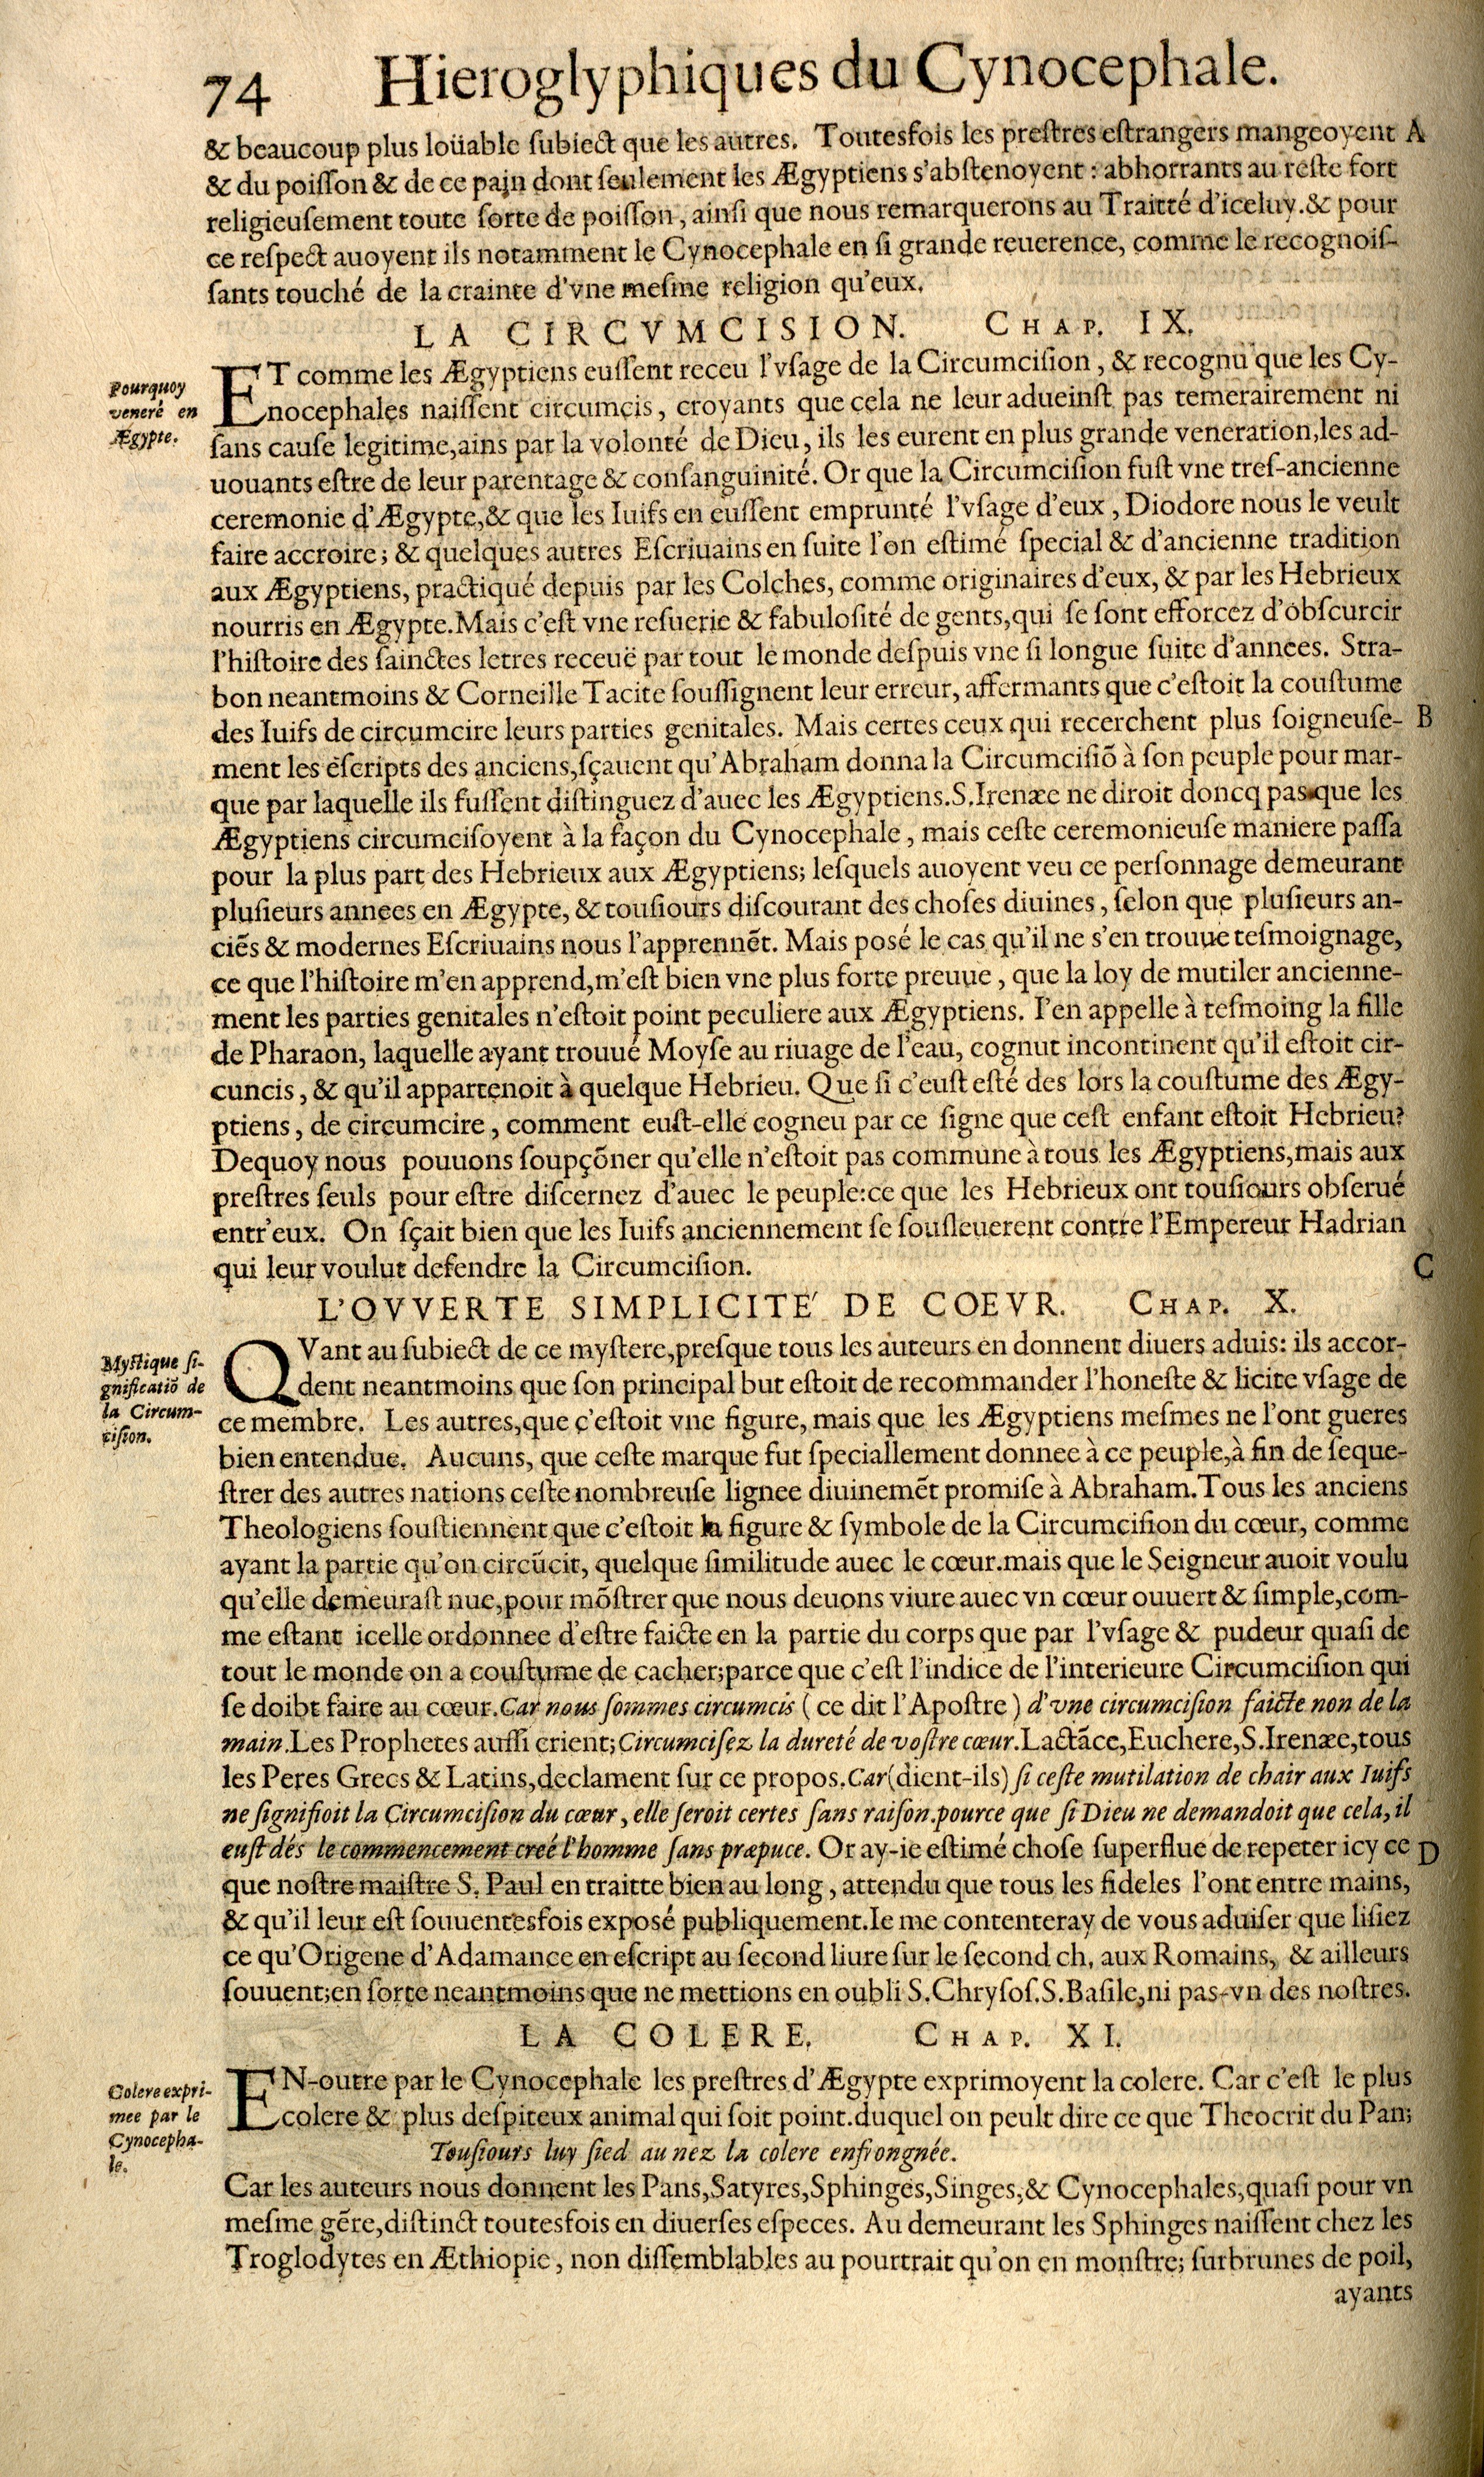 74 Hieroglyphiques du Cynocephale.
& beaucoup plus loüable ſubiect que les autres. Toutesfois les preſtres eſtrangers mangeoyent A
& du poiſſon & de ce pain dont ſeulement les Ægyptiens s'abſtenoyent : abhorrants au reſte fort
religieuſement toute ſorte de poiſſon, ainſi que nous remarquerons au Traitté d'iceluy. & pour
ce reſpect auoyent ils notamment le Cynocephale en ſi grande reuerence, comme le recognoiſ-
ſants touché de la crainte d'vne meſme religion qu'eux.
LA CIRCVMCISION. CHAP. IX.
Pourquoy
veneré en
Ægypte.
ET comme les Ægyptiens euſſent receu l'vſage de la Circumciſion, & recognu que les Cy-
nocephales naiſſent circumcis, croyants que cela ne leur adueinſt pas temerairement ni
ſans cauſe legitime, ains par la volonté de Dieu, ils les eurent en plus grande veneration, les ad-
uouants eſtre de leur parentage & conſanguinité. Or que la Circumciſion fuſt vne treſ-ancienne
ceremonie d'Ægypte, & que les Iuifs en euſſent emprunté l'vſage d'eux, Diodore nous le veult
faire accroire; & quelques autres Eſcriuains en ſuite l'on eſtimé ſpecial & d'ancienne tradition
aux Ægyptiens, practiqué depuis par les Colches, comme originaires d'eux, & par les Hebrieux
nourris en Ægypte. Mais c'eſt vne reſuerie & fabuloſité de gents, qui ſe ſont efforcez d'obſcurcir
l'hiſtoire des ſainctes letres receuë par tout le monde deſpuis vne ſi longue ſuite d'annees. Stra-
bon neantmoins & Corneille Tacite ſouſſignent leur erreur, affermants que c'eſtoit la couſtume
des Iuifs de circumcire leurs parties genitales. Mais certes ceux qui recerchent plus ſoigneuſe- B
ment les eſcripts des anciens, ſçauent qu'Abraham donna la Circumciſiō à ſon peuple pour mar-
que par laquelle ils fuſſent diſtinguez d'auec les Ægyptiens. S. Irenæe ne diroit doncq pas que les
Ægyptiens circumciſoyent à la façon du Cynocephale, mais ceſte ceremonieuſe maniere paſſa
pour la plus part des Hebrieux aux Ægyptiens; leſquels auoyent veu ce perſonnage demeurant
pluſieurs annees en Ægypte, & touſiours diſcourant des choſes diuines, ſelon que pluſieurs an-
ciēs & modernes Eſcriuains nous l'apprennēt. Mais poſé le cas qu'il ne s'en trouue teſmoignage,
ce que l'hiſtoire m'en apprend, m'eſt bien vne plus forte preuue, que la loy de mutiler ancienne-
ment les parties genitales n'eſtoit point peculiere aux Ægyptiens. I'en appelle à teſmoing la fille
de Pharaon, laquelle ayant trouué Moyſe au riuage de l'eau, cognut incontinent qu'il eſtoit cir-
cuncis, & qu'il appartenoit à quelque Hebrieu. Que ſi c'euſt eſté des lors la couſtume des Ægy-
ptiens, de circumcire, comment euſt-elle cogneu par ce ſigne que ceſt enfant eſtoit Hebrieu?
Dequoy nous pouuons ſoupçōner qu'elle n'eſtoit pas commune à tous les Ægyptiens, mais aux
preſtres ſeuls pour eſtre diſcernez d'auec le peuple: ce que les Hebrieux ont touſiours obſerué
entr'eux. On ſçait bien que les Iuifs anciennement ſe ſouſleuerent contre l'Empereur Hadrian
qui leur voulut defendre la Circumciſion. C
L'OVVERTE SIMPLICITE' DE COEVR. CHAP. X.
Myſtique ſi-
gnificatiō de
la Circum-
ciſion.
QVant au ſubiect de ce myſtere, preſque tous les auteurs en donnent diuers aduis: ils accor-
dent neantmoins que ſon principal but eſtoit de recommander l'honeſte & licite vſage de
ce membre. Les autres, que c'eſtoit vne figure, mais que les Ægyptiens meſmes ne l'ont gueres
bien entendue. Aucuns, que ceſte marque fut ſpeciallement donnee à ce peuple, à fin de ſeque-
ſtrer des autres nations ceſte nombreuſe lignee diuinemēt promiſe à Abraham. Tous les anciens
Theologiens ſouſtiennent que c'eſtoit la figure & ſymbole de la Circumciſion du cœur, comme
ayant la partie qu'on circūcit, quelque ſimilitude auec le cœur. mais que le Seigneur auoit voulu
qu'elle demeuraſt nue, pour mōſtrer que nous deuons viure auec vn cœur ouuert & ſimple, com-
me eſtant icelle ordonnee d'eſtre faicte en la partie du corps que par l'vſage & pudeur quaſi de
tout le monde on a couſtume de cacher; parce que c'eſt l'indice de l'interieure Circumciſion qui
ſe doibt faire au cœur. Car nous ſommes circumcis ( ce dit l'Apoſtre ) d'vne circumciſion faicte non de la
main. Les Prophetes auſſi crient; Circumciſez la dureté de voſtre cœur. Lactāce, Euchere, S. Irenæe, tous
les Peres Grecs & Latins, declament ſur ce propos. Car (dient-ils) ſi ceſte mutilation de chair aux Iuifs
ne ſignifioit la Circumciſion du cœur, elle ſeroit certes ſans raiſon. pource que ſi Dieu ne demandoit que cela, il
euſt dés le commencement creé l'homme ſans præpuce. Or ay-ie eſtimé choſe ſuperflue de repeter icy ce D
que noſtre maiſtre S. Paul en traitte bien au long, attendu que tous les fideles l'ont entre mains,
& qu'il leur eſt ſouuentesfois expoſé publiquement. Ie me contenteray de vous aduiſer que liſiez
ce qu'Origene d'Adamance en eſcript au ſecond liure ſur le ſecond ch. aux Romains, & ailleurs
ſouuent; en ſorte neantmoins que ne mettions en oubli S. Chryſoſ. S. Baſile, ni pas-vn des noſtres.
LA COLERE. CHAP. XI.
Colere expri-
mee par le
Cynocepha-
le.
EN-outre par le Cynocephale les preſtres d'Ægypte exprimoyent la colere. Car c'eſt le plus
colere & plus deſpiteux animal qui ſoit point. duquel on peult dire ce que Theocrit du Pan;
Touſiours luy ſied au nez la colere enfrongnée.
Car les auteurs nous donnent les Pans, Satyres, Sphinges, Singes, & Cynocephales, quaſi pour vn
meſme gēre, diſtinct toutesfois en diuerſes eſpeces. Au demeurant les Sphinges naiſſent chez les
Troglodytes en Æthiopie, non diſſemblables au pourtrait qu'on en monſtre; ſurbrunes de poil,
ayants